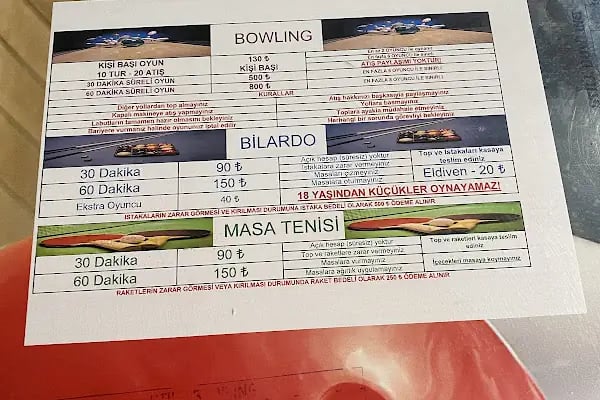 BOWLING
KİŞİ BAŞI OYUN
10 TUR - 20 ATIŞ
130 ₺
KİŞİ BAŞI
En az 2 OYUNCU ile oynanır
En fazla 6 OYUNCU İLE SINIRLI
ATIŞ PAYLAŞIMI YOKTUR!
30 DAKİKA SÜRELİ OYUN
500 ₺
EN FAZLA 6 OYUNCU İLE SINIRLI
60 DAKİKA SÜRELİ OYUN
800 ₺
EN FAZLA 6 OYUNCU İLE SINIRLI
KURALLAR
Diğer yollardan top almayınız
Atış hakkınızı başkasıyla paylaşmayınız
Kapalı makineye atış yapmayınız
Yollara basmayınız
Labutların tamamen hazır olmasını bekleyiniz
Toplara ayakla müdahale etmeyiniz
Bariyere vurmanız halinde oyununuz iptal edilir
Herhangi bir sorunda görevliyi bekleyiniz
BİLARDO
30 Dakika
90 ₺
Açık hesap (süresiz) yoktur
Istakalara zarar vermeyiniz
Top ve Istakaları kasaya
teslim ediniz
60 Dakika
150 ₺
Masaları çizmeyiniz
Masalara oturmayınız
Eldiven - 20 ₺
Ekstra Oyuncu
40 ₺
18 YAŞINDAN KÜÇÜKLER OYNAYAMAZ!
ISTAKALARIN ZARAR GÖRMESİ VE KIRILMASI DURUMUNA ISTAKA BEDELİ OLARAK 500 ₺ ÖDEME ALINIR
MASA TENİSİ
30 Dakika
90 ₺
Açık hesap (süresiz) yoktur
Top ve raketlere zarar vermeyiniz
Top ve raketleri kasaya teslim
ediniz
60 Dakika
150 ₺
Masalara vurmayınız
Masalara ağırlık uygulamayınız
İçecekleri masaya koymayınız
RAKETLERİN ZARAR GÖRMESİ VEYA KIRILMASI DURUMUNDA RAKET BEDELİ OLARAK 250 ₺ ÖDEME ALINIR